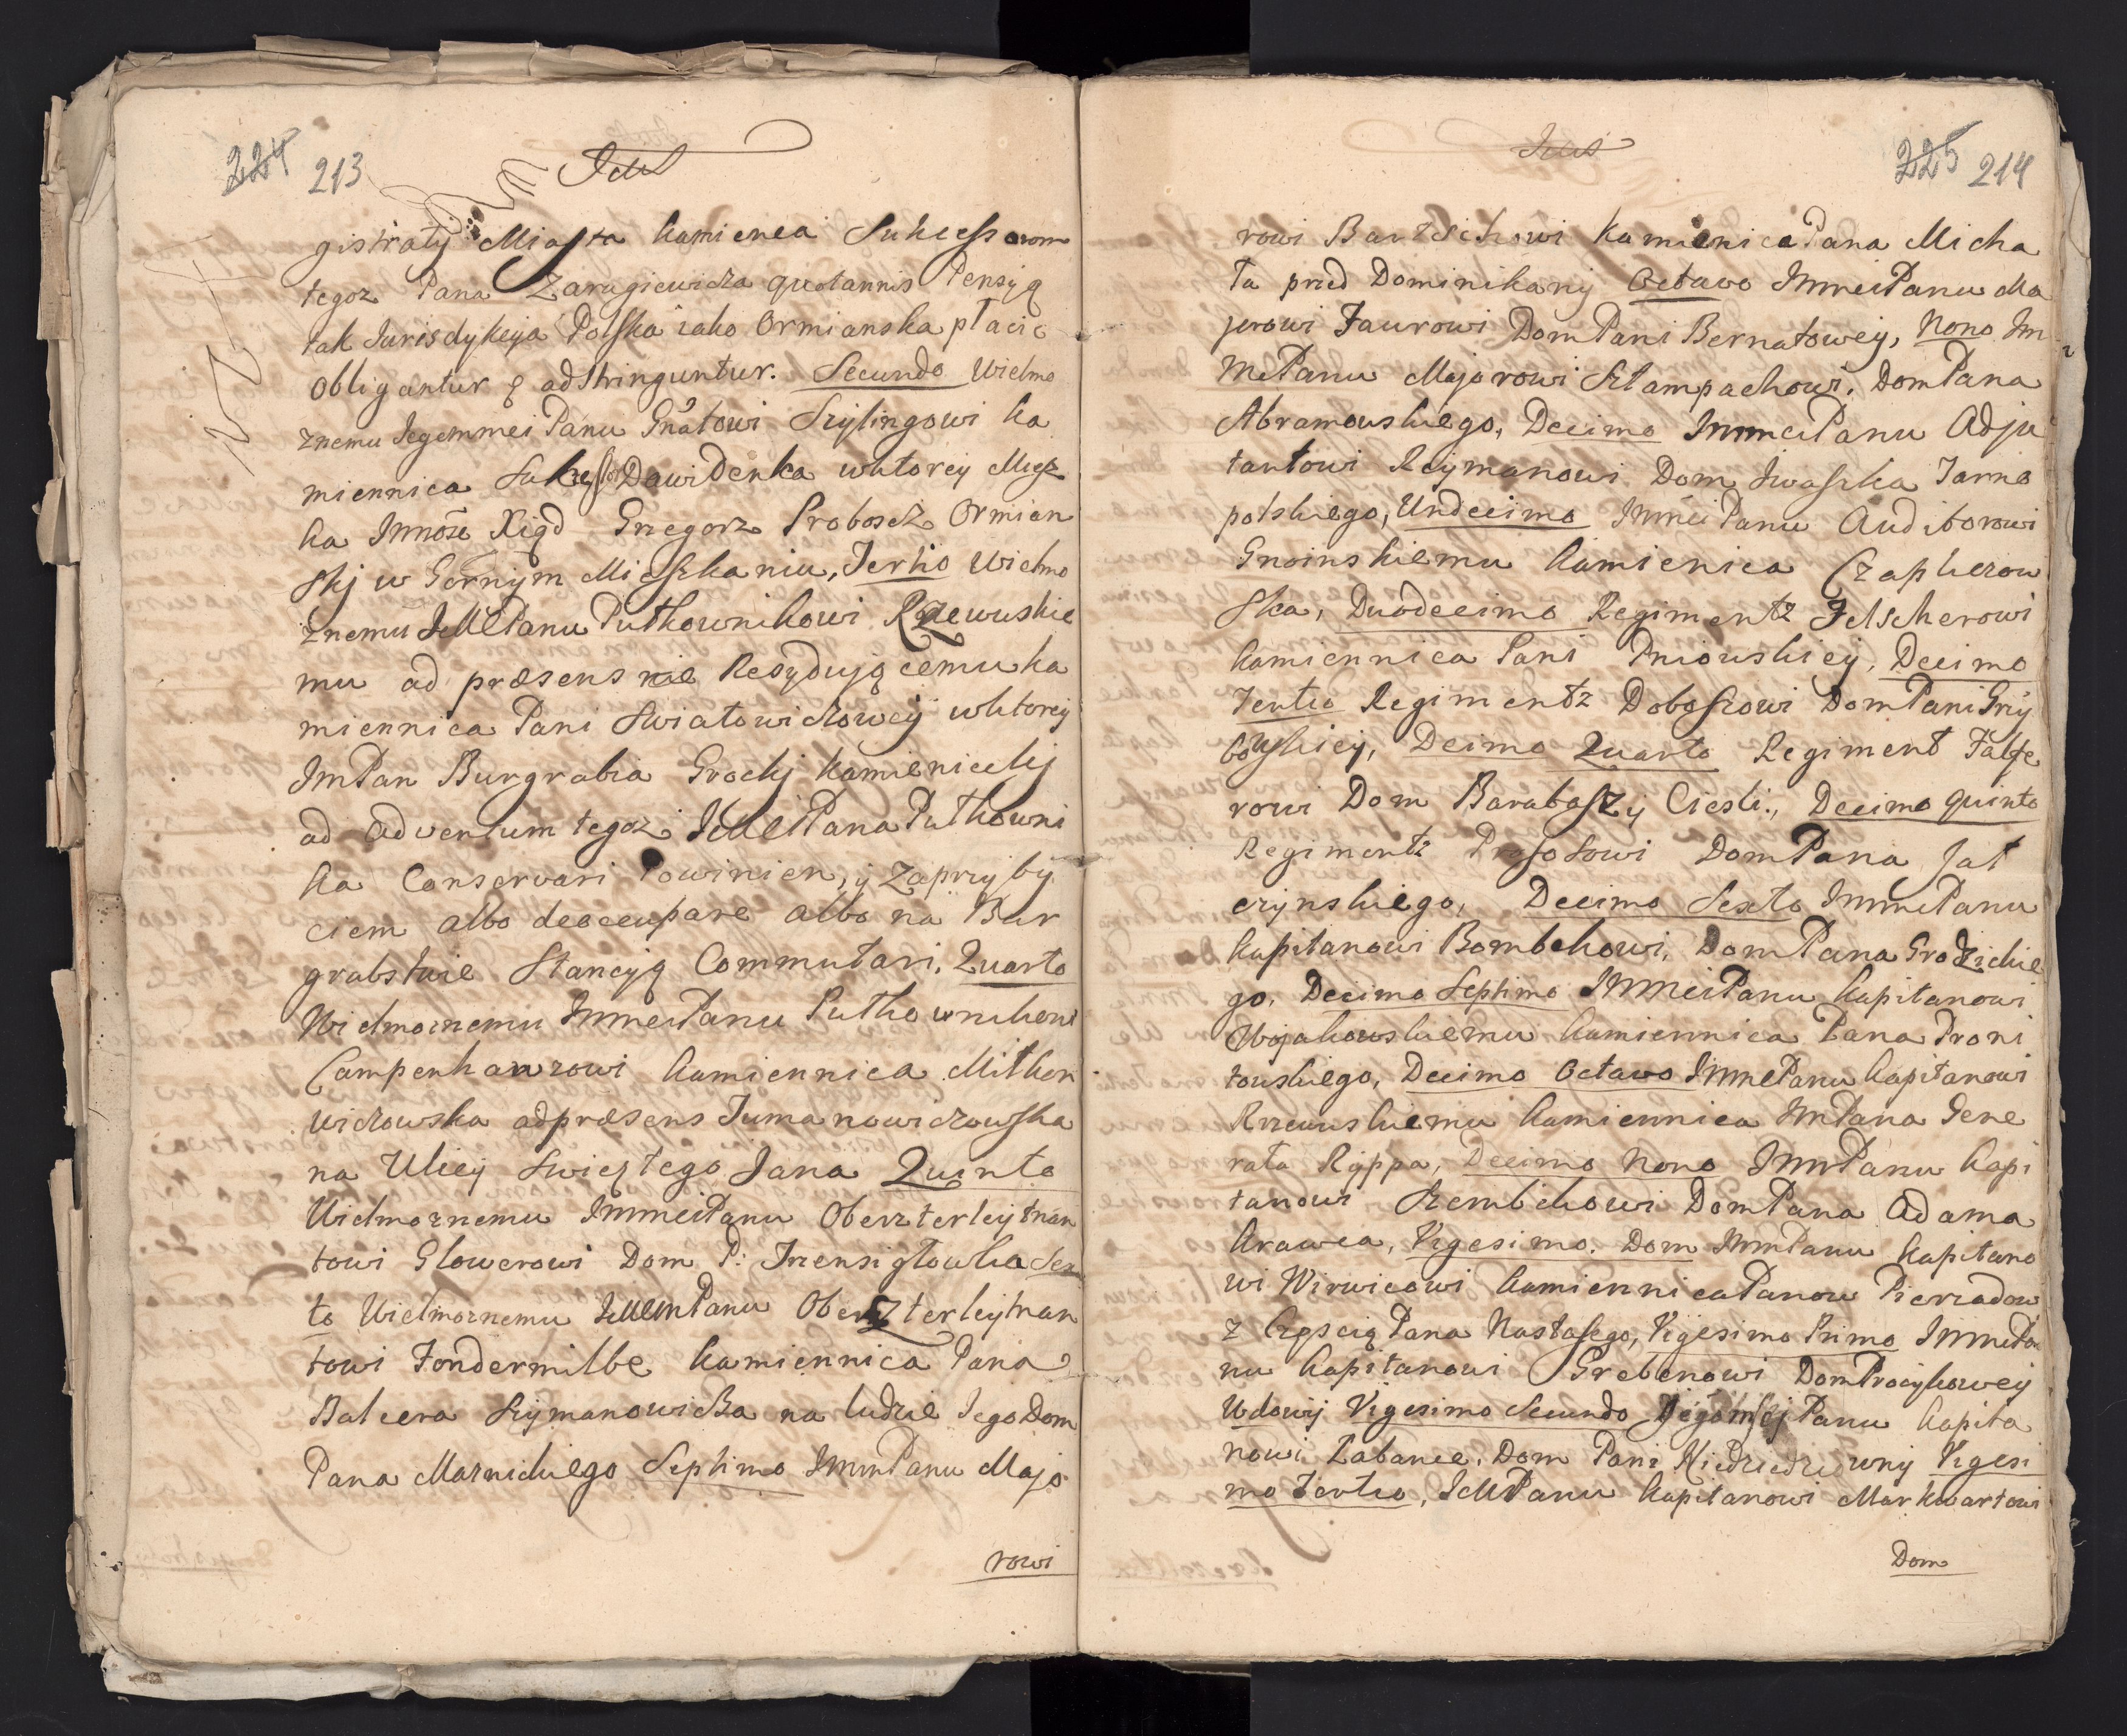 224 213
gistraty Miasta Kamienca Sukcessorom
tegoz Pana Zarugiewicza quotannis Pensyą
tak Jurisdykcyja Polska iako Ormianska płacic
obligantur & adstringuntur. Secundo Wielmo
znemu Jegommci Panu Gnałowi Szylingowi Ka
miennica Sukcess: Dawidenka wktorey Miesz
ka Jmmośc Xiądz Grzegorz Proboscz Ormian
skj w Gornym Mieszkaniu, Tertio Wielmo
znemu JMPanu Pułkownikowi Rzewuskie
mu ad præsens nie Resydującemu Ka
miennica Pani Swiatowiczowey wktorey
ImPan Burgrabia Grocky Kamienieckj
ad adventum tegoz JMPana Pułkowni
ka Conservari Powinien, y zaprzyby
ciem albo deoccupare albo na Bur
grabstwie Stancyją Commutari, Quarto
Wielmoznemu JmmciPanu Pułkownikowi
Campenhauzowi Kamiennica Mitkon
wiczowska adpræsens Tumanowiczowska
na Ulicy Swiętego Jana Quinto
Wielmoznemu JmmciPanu Oberzterleytnan
towi Glowerowi Dom P: Trzensigłowka Sex
to Wielmoznemu JMmPanu Oberszterleytnan
towi Fondermilbe Kamiennica Pana
Balcera Szymanowicza na ludzie Jego Dom
Pana Marnickiego Septimo JmmPanu Majo
rowi
225 214
rowi Bartschowi Kamienica Pana Micha
ła przed Dominikany Octavo JmmciPanu Ma
jorowi Faurowi Dom Pani Bernatowey, Nono Jm
MciPanu Majorowi Sztampachowi, Dom Pana
Abramowskiego, Decimo JmmciPanu Adju
tantowi Reymanowi Dom Iwaszka Tarno
polskiego, Undecimo JmmciPanu Auditorowi
Gnoinskiemu Kamienica Czapkerow
ska, Duodecimo Regimentz Felscherowi
Kamiennica Pani Pniowskiey, Decimo
Tertio Regimentz Doboszowi Dom Pani Gry
bowskiey, Decimo Quarto Regiment Falfe
rowi Dom Barabaszy Ciesli., Decimo quinto
Regimentz Profosowi Dom Pana Jat
czynskiego, Decimo Sexto JmmciPanu
Kapitanowi Bombekowi, Dom Pana Grodzickie
go, Decimo Septimo JmmciPanu Kapitanowi
Wojakowskiemu Kamiennica Pana Proni
towskiego, Decimo Octavo JmmciPanu Kapitanowi
Rzewuskiemu Kamiennica ImPana Gene
rała Ryppa, Decimo Nono JmmPanu Kapi
tanowi Szembekowi Dom Pana Adama
Krawca, Vigesimo. Dom JmmPanu Kapitano
wi Wirwicowi Kamiennica Panow Pierzadow
z Częscią Pana Nastasego, Vigesimo Primo JmmciPa
nu Kapitanowi Grebenowi Dom Procykowey
Wdowy Vigesimo Secundo Jegomscj Panu Kapita
nowi Labance, Dom Pani Niedzwiedziowny Vigesi
mo Tertio, JMPanu Kapitanowi Markwartowi
Dom